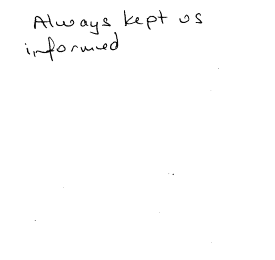 Always kept us
informed